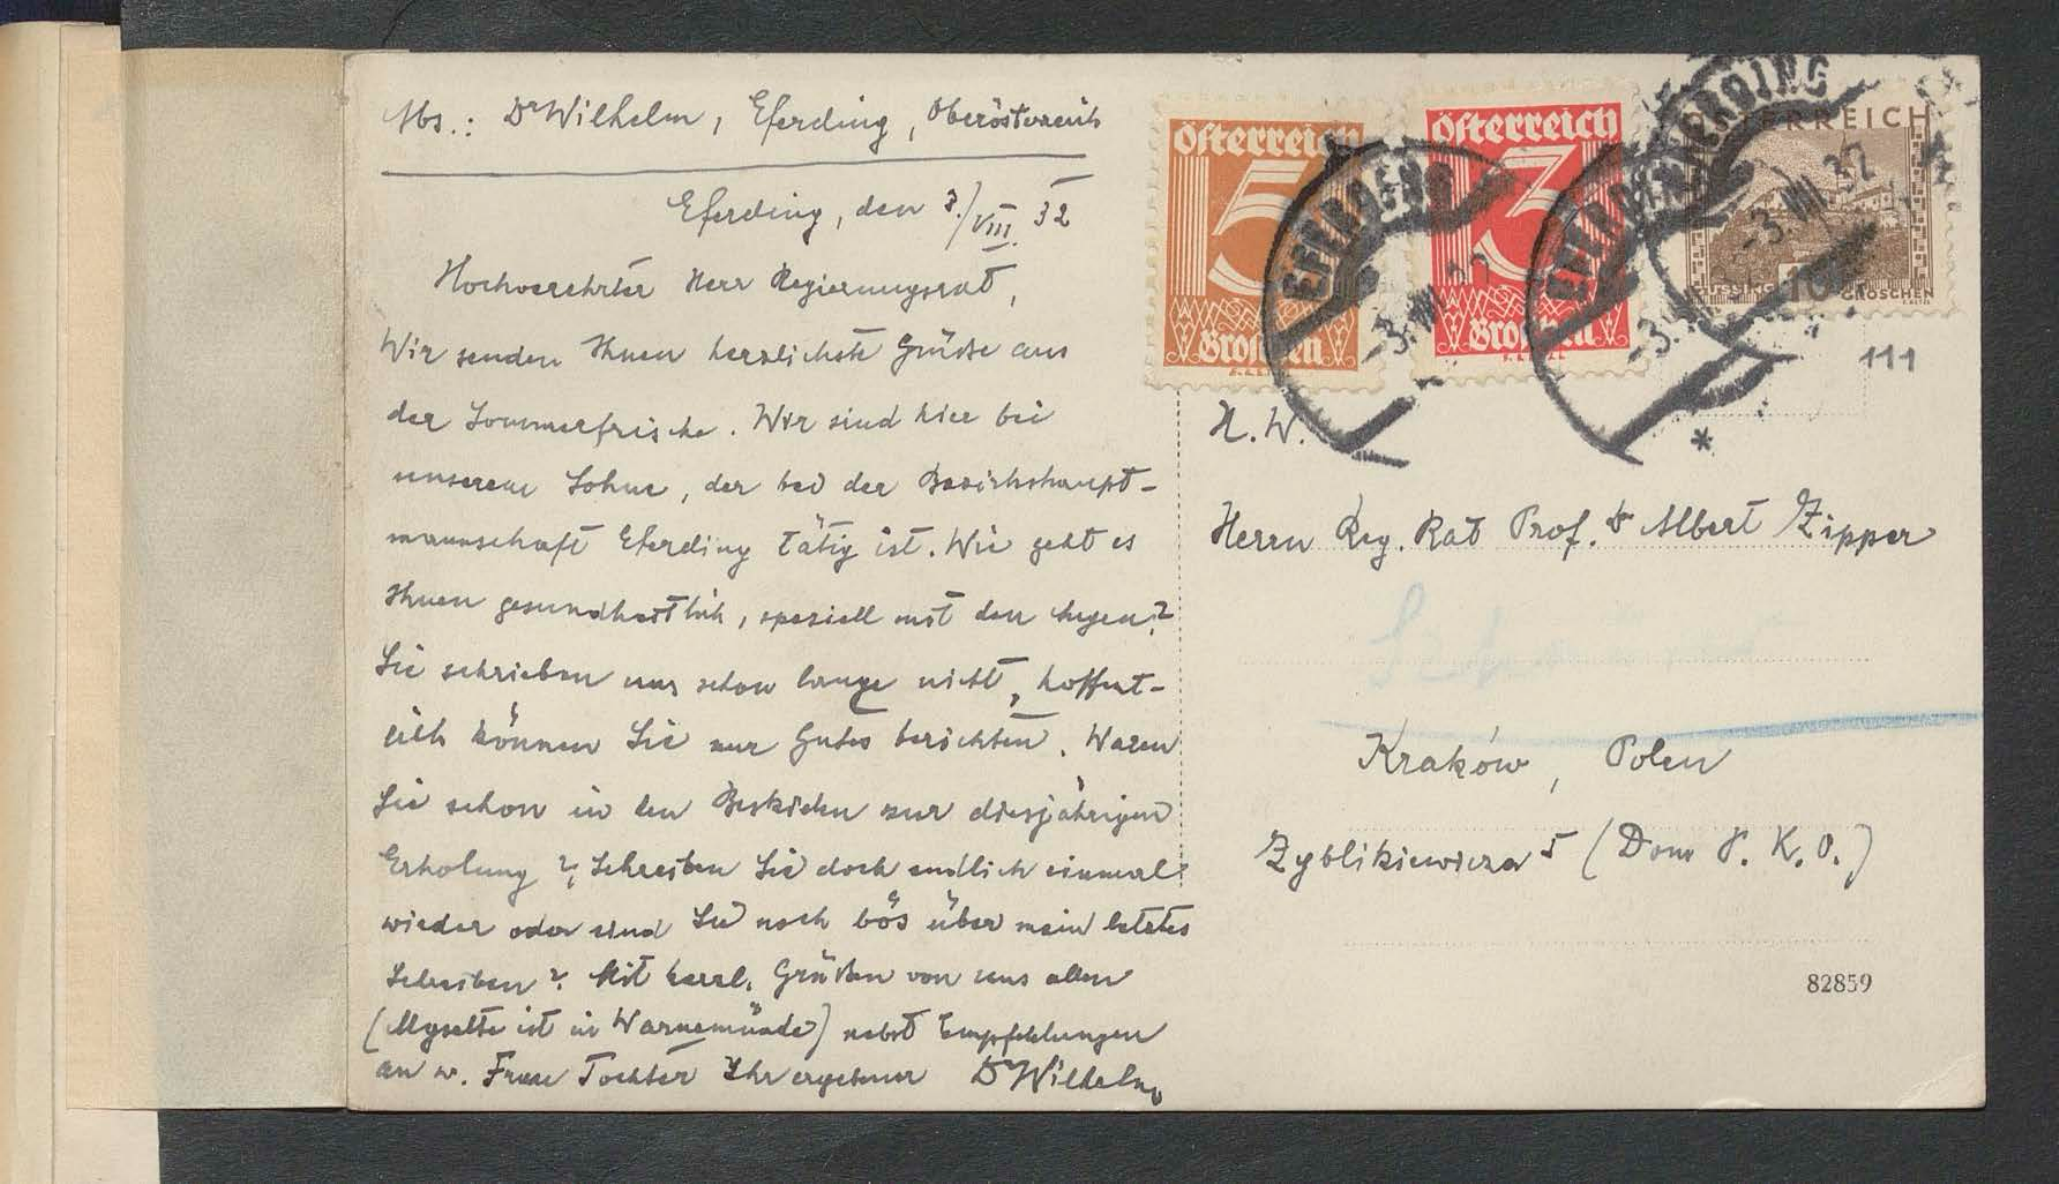 Abs.: Dr Wilhelm, Eferding, Oberösterreich
Eferding, den 3./VIII. 32
Hochverehrter Herr Regierungsrat,
Wir senden Ihnen herzlichste Grüße aus
der Sommerfrische. Wir sind hier bei
unserem Sohne, der bei der Bezirkshaupt-
mannschaft Eferding tätig ist. Wie geht es
Ihnen gesundheitlich, speziell mit den Augen?
Sie schrieben uns schon lange nicht, hoffent-
lich können Sie nur Gutes berichten. Waren
Sie schon in den Beskiden zur diesjährigen
Erholung? Schreiben Sie doch endlich einmal
wieder oder sind Sie noch bös über mein letztes
Schreiben? Mit herzl. Grüßen von uns allen
( ist in Warnemünde) nebst Empfehlungen
an w. Frau Tochter Ihr ergebener Dr Wilhelm
Österreich
5
Groschen
Österreich
3
Groschen
ÖSTERREICH
10 GROSCHEN
EFERDING
-3.VIII 32
EFERDING
-3.VIII
EFERDING
-3.VIII 32
*
111
H.W.
Herrn Reg. Rat Prof. Dr Albert Zipper
Kraków, Polen
Zyblikiewicza 5 (Dom P. K. O.)
82859